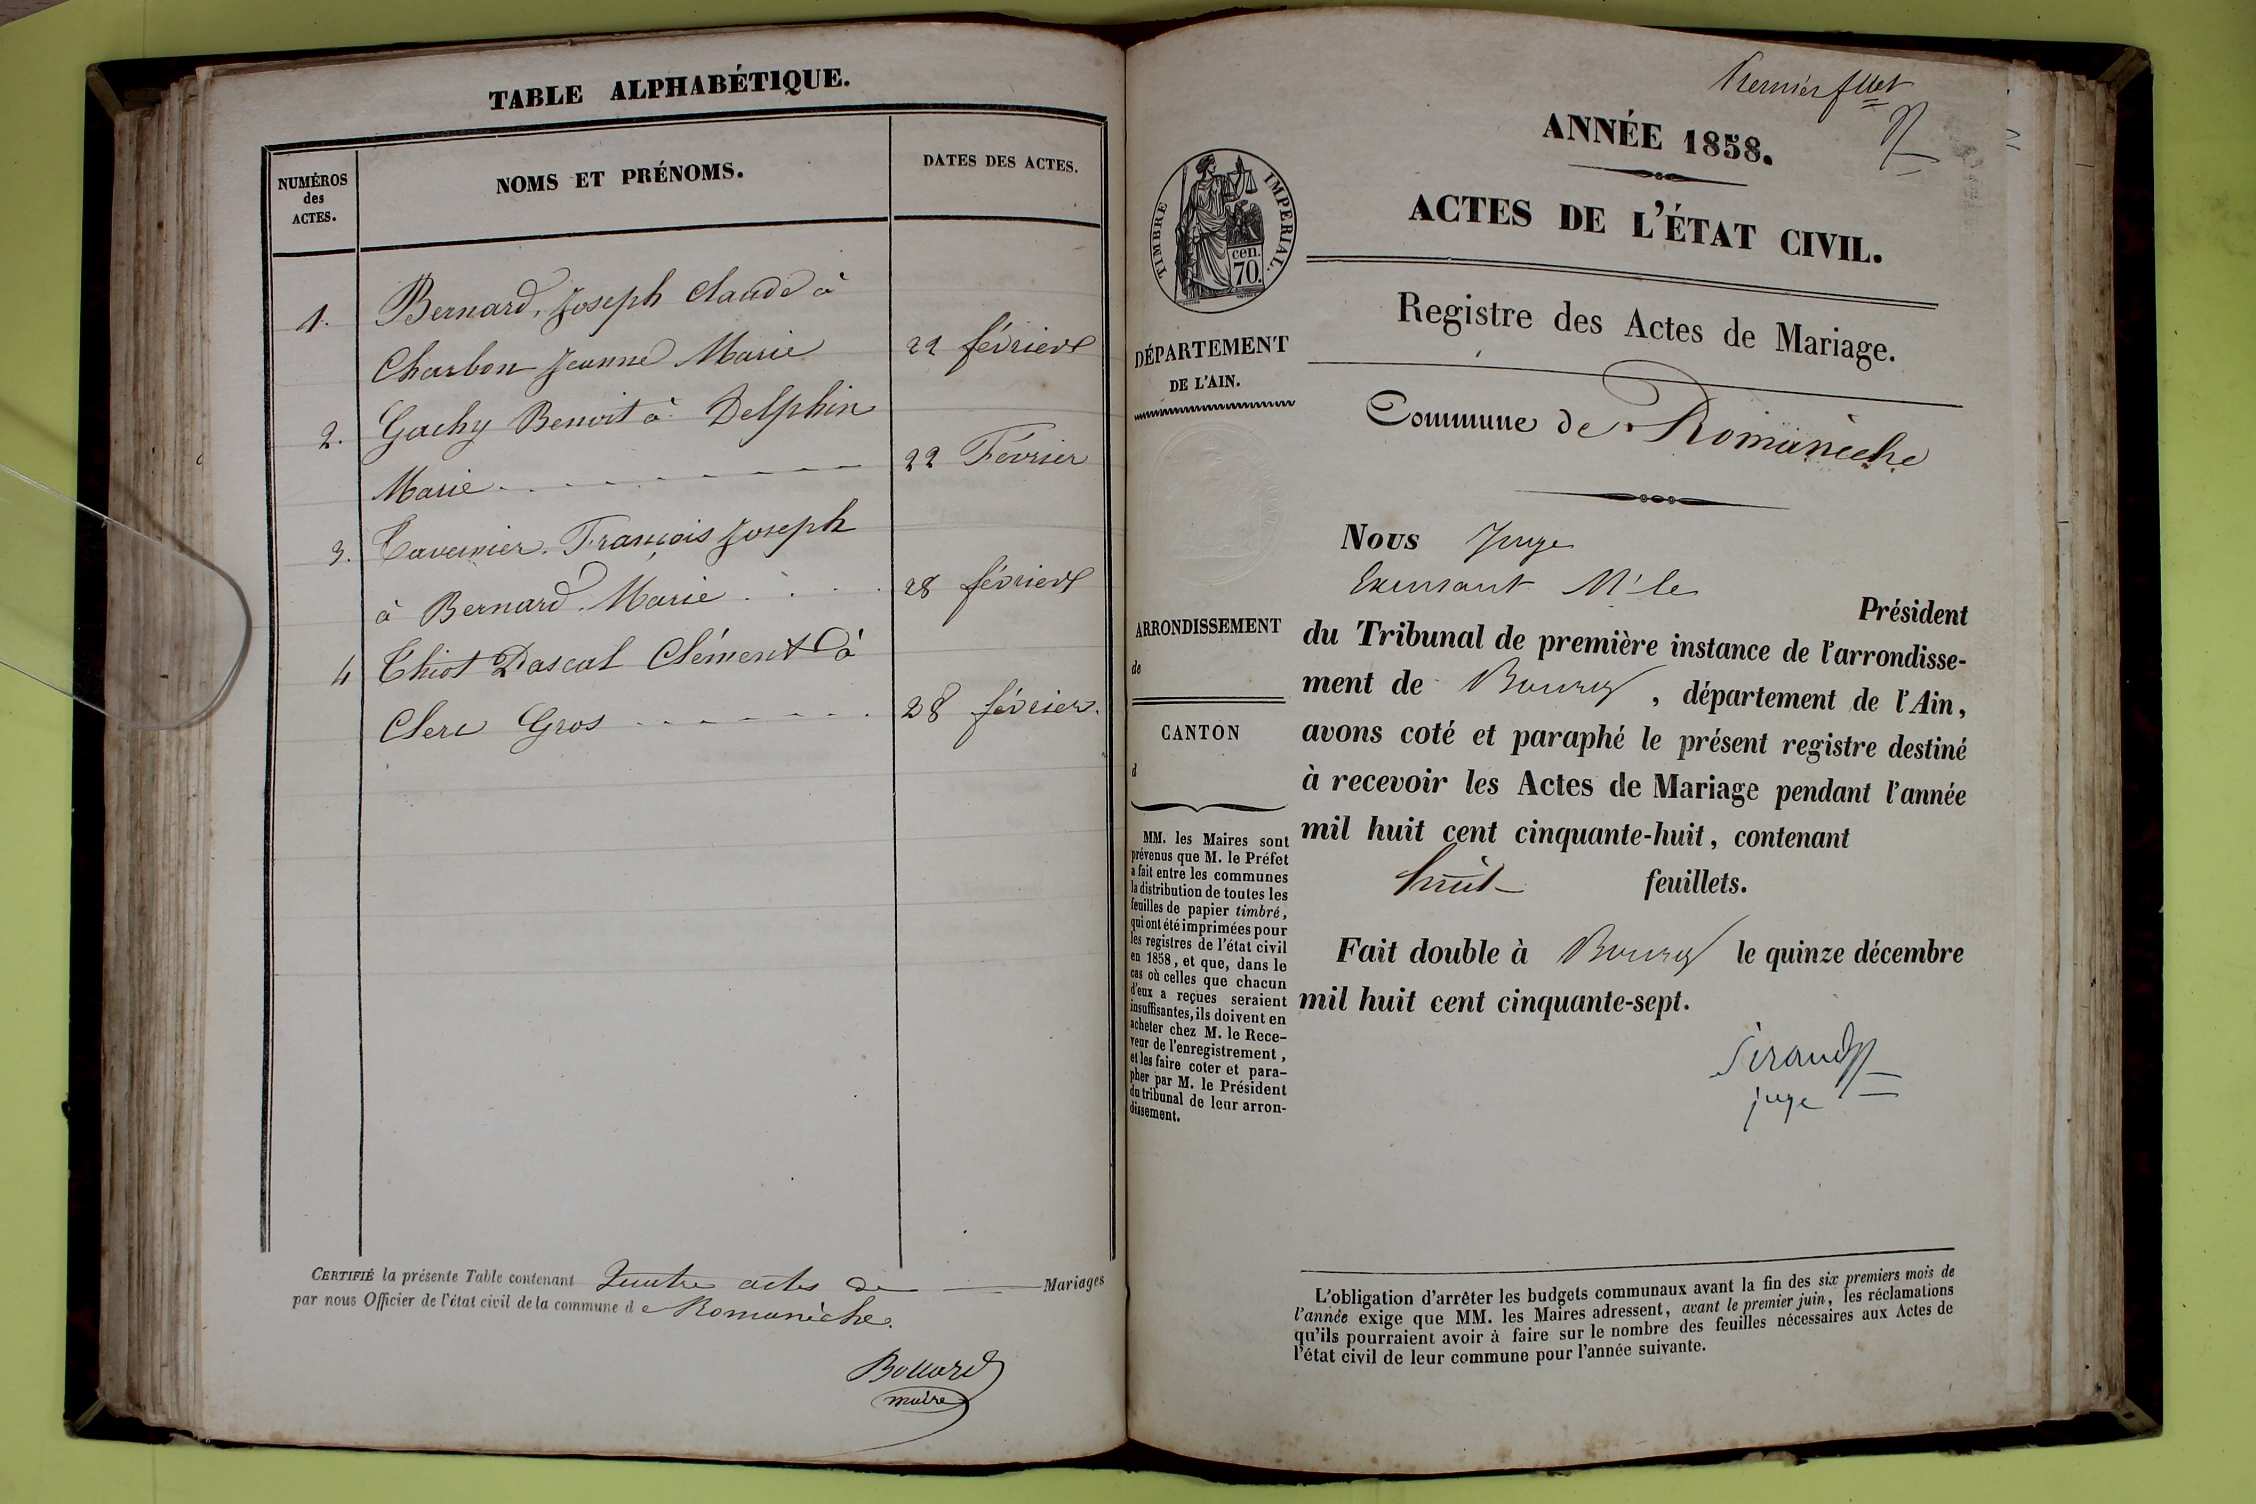 TABLE ALPHABÉTIQUE.
NUMÉROS
des
ACTES.
NOMS ET PRÉNOMS.
DATES DES ACTES.
1. Bernard, Joseph Claude à
Charbon Jeanne Marie 22 février
2. Gachy Benoit à Delphin
Marie 22 Février
3. Tavernier François Joseph
à Bernard Marie 28 février
4 Thiot Pascal Clément à
Clerc Gros 28 février.
CERTIFIÉ la présente Table contenant Quatre actes de Mariages
par nous Officier de l'état civil de la commune de Romanèche.
maire
Premier
ANNÉE 1858.
ACTES DE L'ÉTAT CIVIL.
TIMBRE IMPERIAL.
cen.
70.
Registre des Actes de Mariage.
DÉPARTEMENT
DE L'AIN.
Commune de Romanèche
ARRONDISSEMENT
de
CANTON
d
MM. les Maires sont
prévenus que M. le Préfet
a fait entre les communes
la distribution de toutes les
feuilles de papier timbré,
qui ont été imprimées pour
les registres de l'état civil
en 1858, et que, dans le
cas où celles que chacun
d'eux a reçues seraient
insuffisantes, ils doivent en
acheter chez M. le Rece-
veur de l'enregistrement,
et les faire coter et para-
pher par M. le Président
du tribunal de leur arron-
dissement.
Nous Juge
Exerçant Mr le
Président
du Tribunal de première instance de l'arrondisse-
ment de Bourg, département de l'Ain,
avons coté et paraphé le présent registre destiné
à recevoir les Actes de Mariage pendant l'année
mil huit cent cinquante-huit, contenant
huit feuillets.
Fait double à Bourg le quinze décembre
mil huit cent cinquante-sept.
juge
L'obligation d'arrêter les budgets communaux avant la fin des six premiers mois de
l'année exige que MM. les Maires adressent, avant le premier juin, les réclamations
qu'ils pourraient avoir à faire sur le nombre des feuilles nécessaires aux Actes de
l'état civil de leur commune pour l'année suivante.